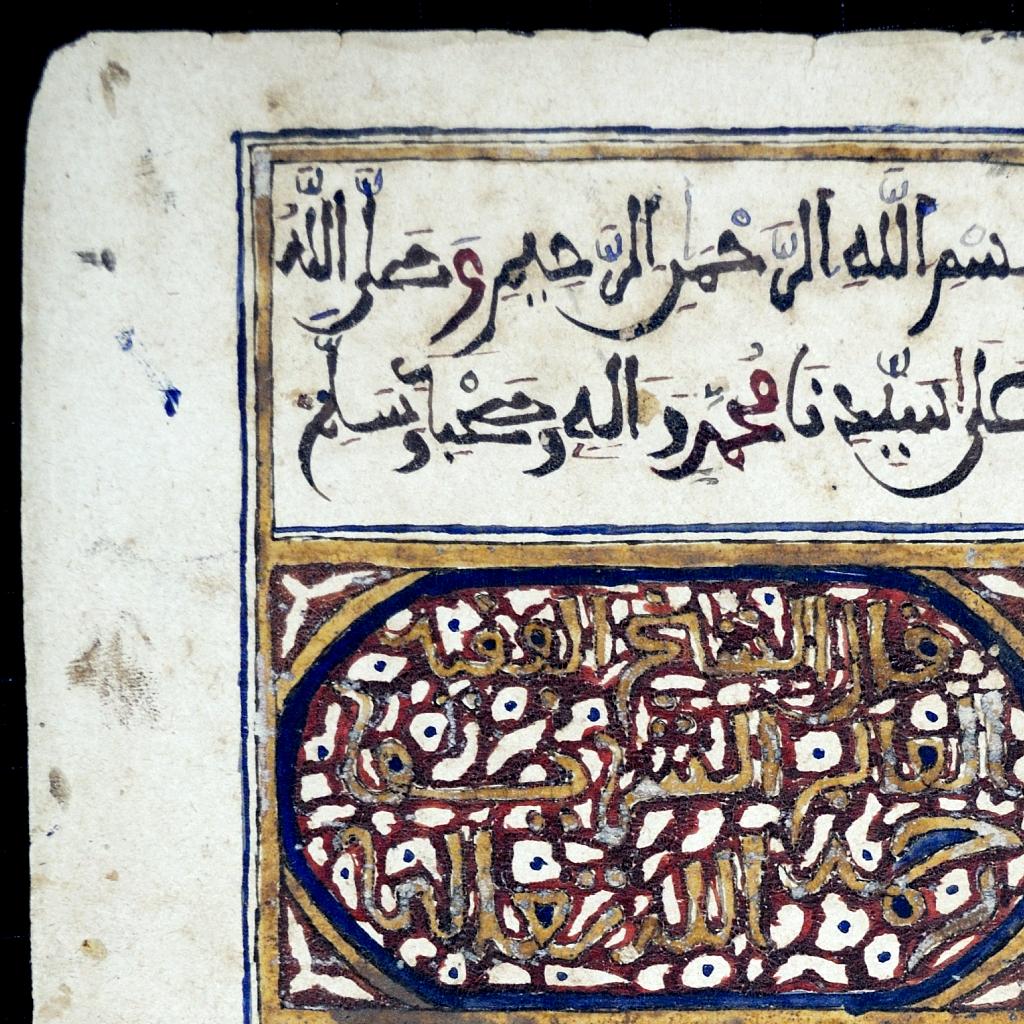 بسم الله الرحمن الرحيم وصلى الله
على سيدنا محمد واله وصحبه وسلم
قال الشيخ الفقيه
الله تعالى